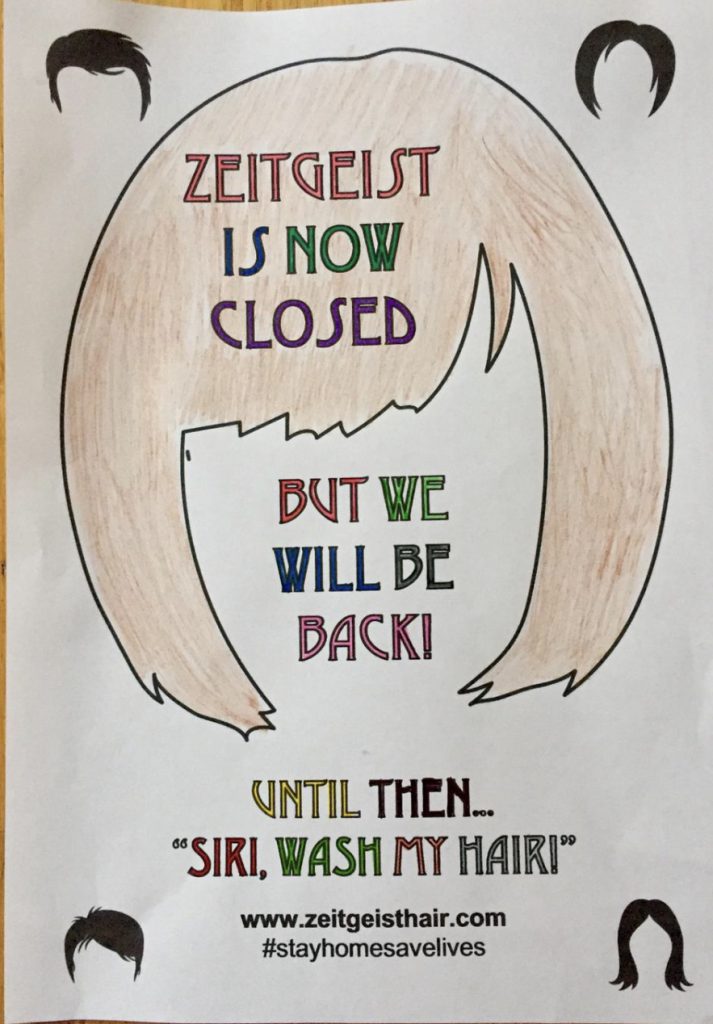 ZEITGEIST
IS NOW
CLOSED
BUT WE
WILL BE
BACK!
UNTIL THEN...
“SIRI, WASH MY HAIR!”
www.zeitgeisthair.com
#stayhomesavelives